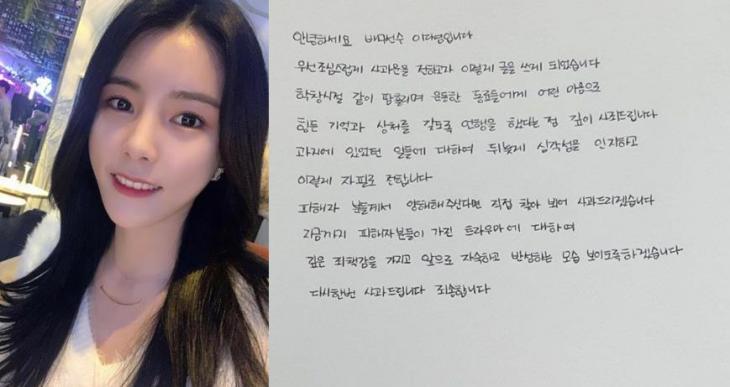 안녕하세요 배구선수 이다영입니다
우선 조심스럽게 사과문을 전하고자 이렇게 글을 쓰게 되었습니다
학창시절 같이 땀흘리며 운동한 동료들에게 어린 마음으로
힘든 기억과 상처를 갖도록 언행을 했다는 점 깊이 사죄드립니다
과거에 있었던 일들에 대하여 뒤늦게 심각성을 인지하고
이렇게 자필로 전합니다
피해자 분들께서 양해해주신다면 직접 찾아 뵈어 사과드리겠습니다
지금까지 피해자분들이 가진 트라우마에 대하여
깊은 죄책감을 가지고 앞으로 자숙하고 반성하는 모습 보이도록하겠습니다
다시한번 사과드립니다 죄송합니다